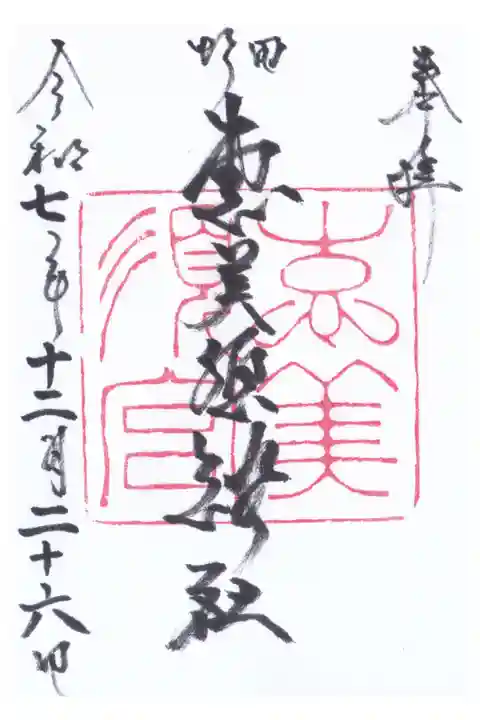 奉拝
野田
恵美須神社
恵美
須宮
令和七年十二月二十六日